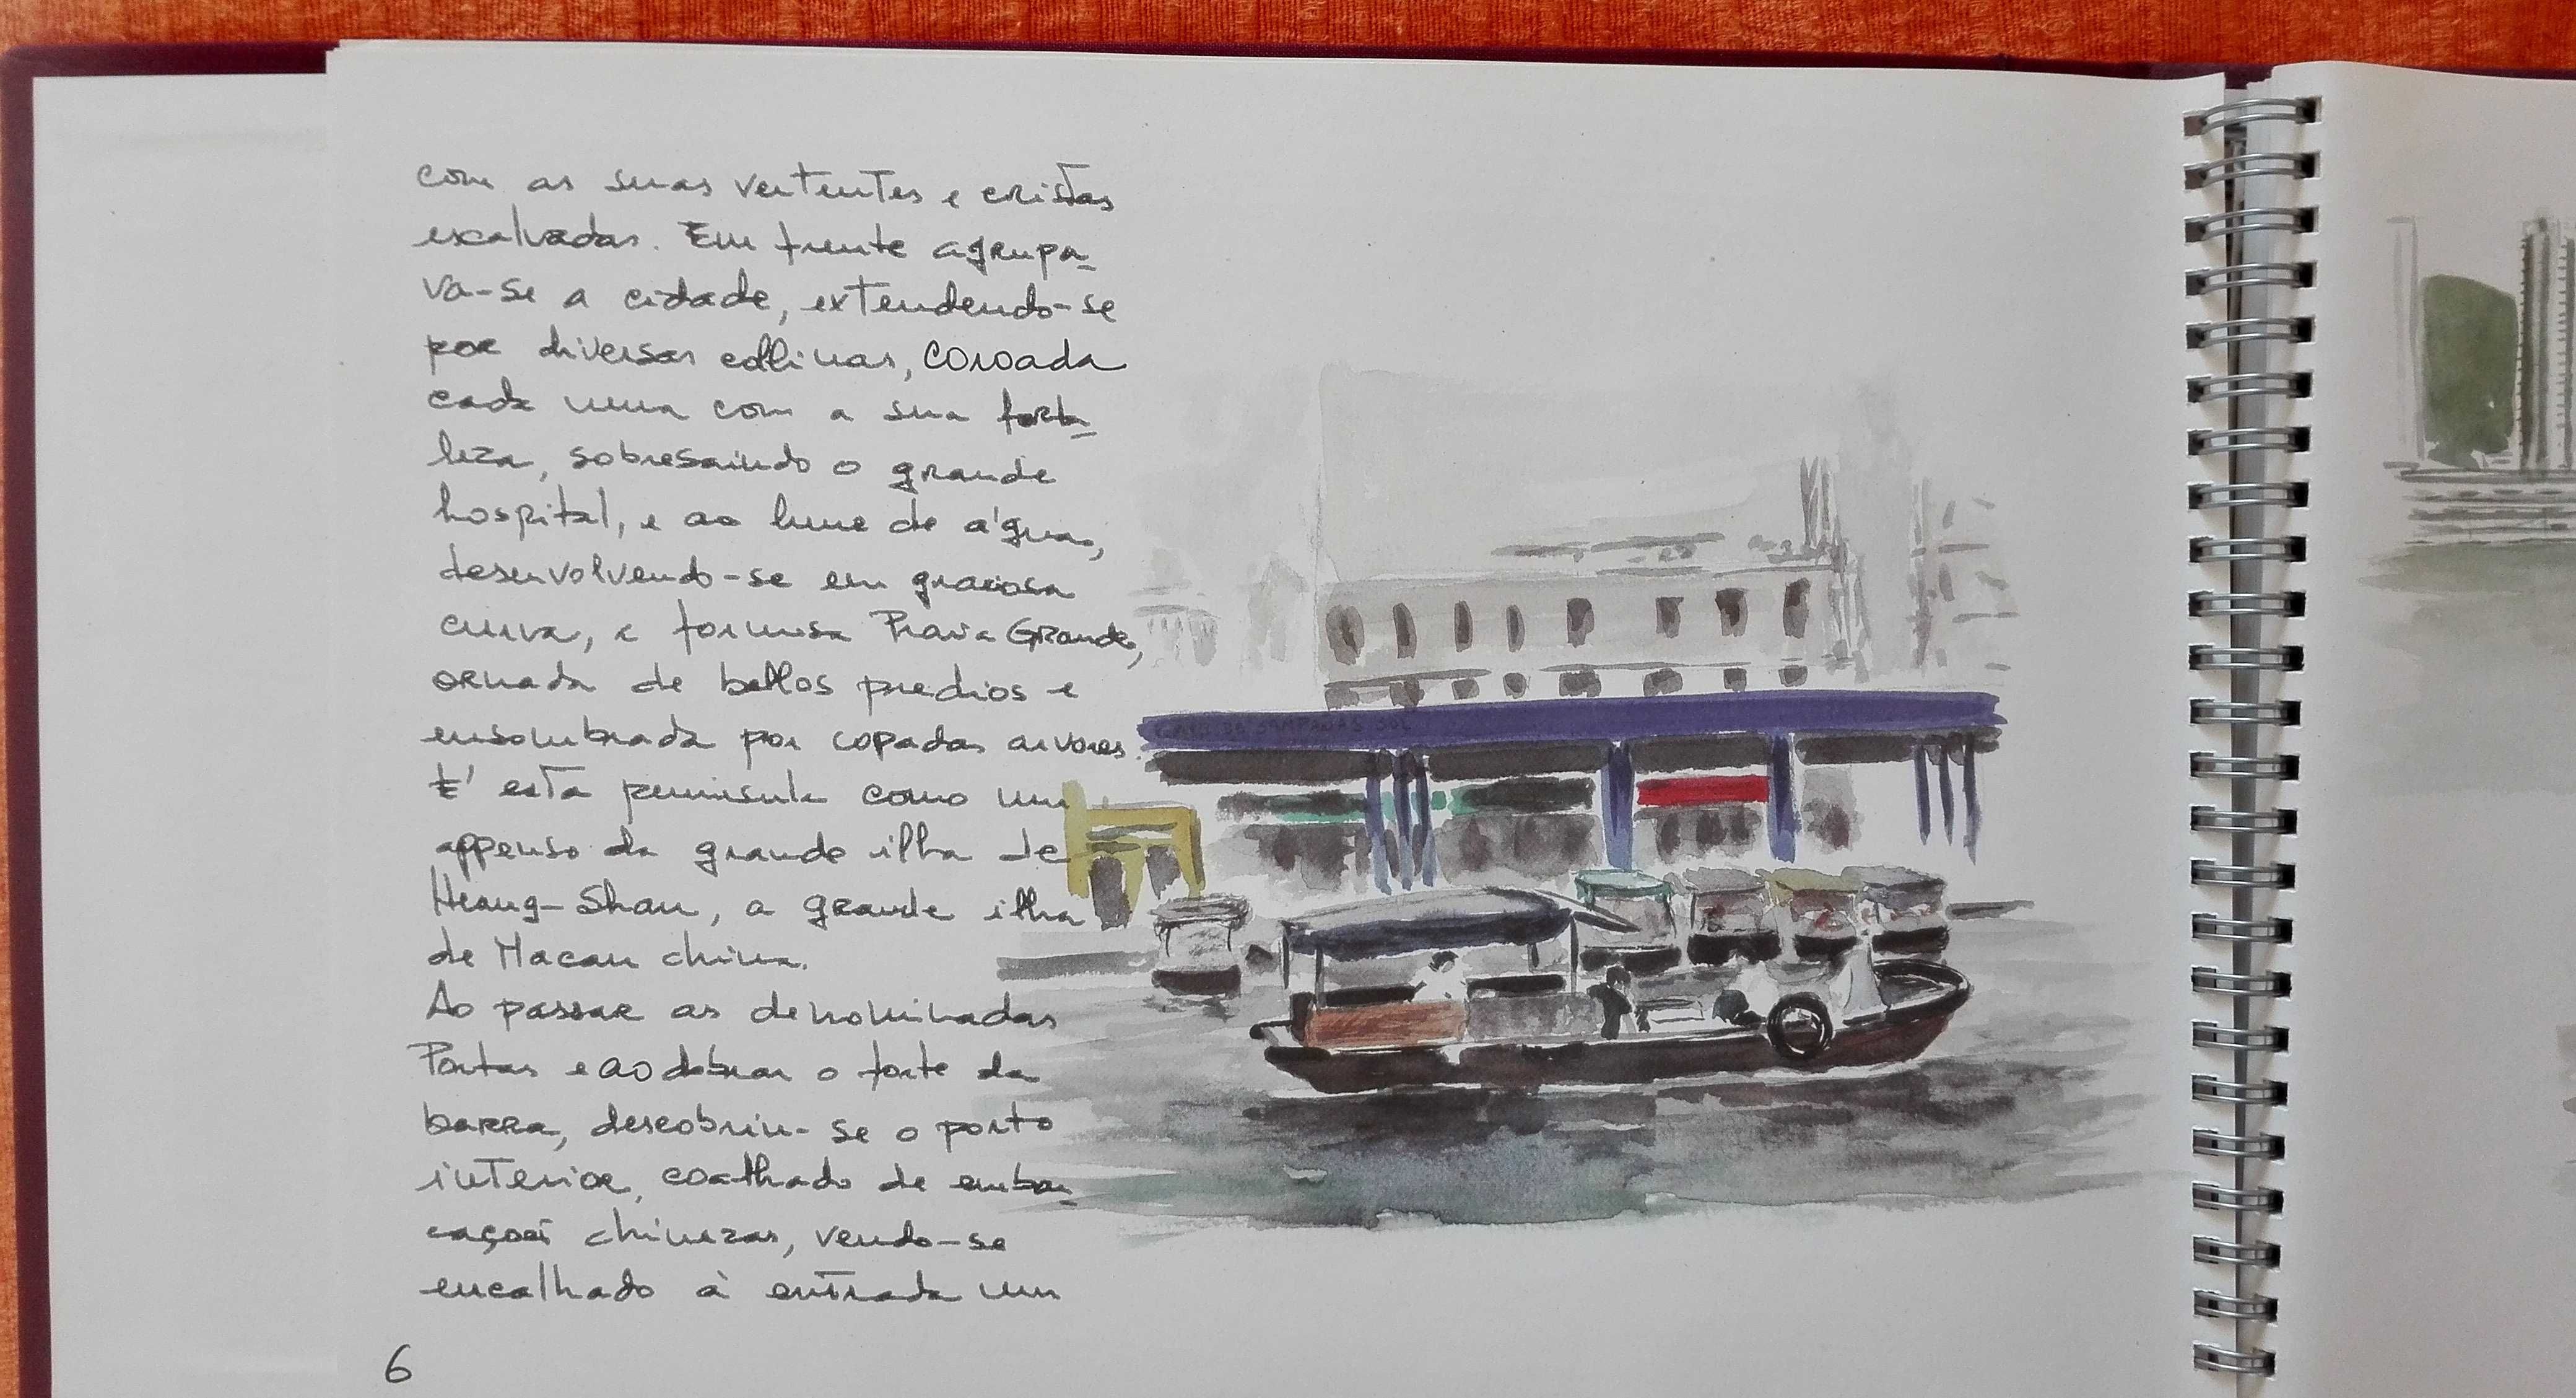 com as suas vertentes e cristas
escalvadas. Em frente agrupa-
va-se a cidade, extendendo-se
por diversas collinas, coroada
cada uma com a sua forta-
leza, sobresaindo o grande
hospital, e ao lume de a'gua,
desenvolvendo-se em graciosa
curva, a formosa Praia Grande,
ornada de bellos predios e
ensombrada por copadas arvores.
E' esta peninsula como um
appenso da grande ilha de
Heang-Shan, a grande ilha
de Macau china.
Ao passar as denominadas
Portas e ao dobrar o forte da
barra, descobriu-se o porto
interior, coalhado de embar-
cações chinezas, vendo-se
encalhado à entrada um
6